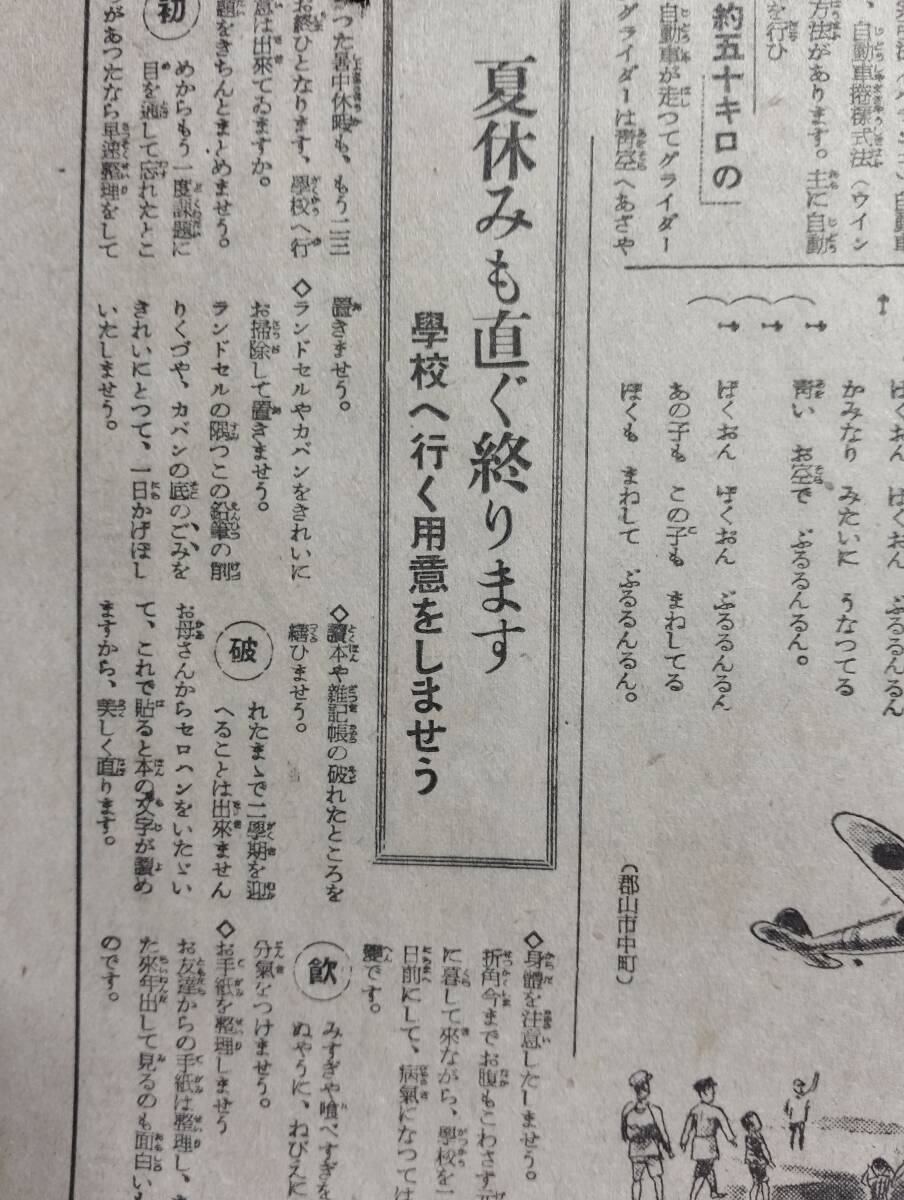 自動車捲揚式法(ウイン
方法があります。主に自動
を行ひ
約五十キロの
自動車が走つてグライダー
グライダーは靑空へあさや
ばくおん ばくおん ぶるるんるん
かみなり みたいに うなつてる
靑い お空で ぶるるんるん。
ばくおん ばくおん ぶるるんるん
あの子も この子も まねしてる
ぼくも まねして ぶるるんるん。
(郡山市中町)
夏休みも直ぐ終ります
學校へ行く用意をしませう
つた暑中休暇も、もう二三
お終ひとなります、學校へ行
意は出來てゐますか。
題をきちんとまとめませう。
初
めからもう一度課題に
目を通して忘れたとこ
があつたなら早速整理をして
置きませう。
◇ランドセルやカバンをきれいに
お掃除して置きませう。
ランドセルの隅つこの鉛筆の削
りくづや、カバンの底のごみを
きれいにとつて、一日かげぼし
いたしませう。
◇讀本や雑記帳の破れたところを
繕ひませう。
破
れたまゝで二學期を迎
へることは出來ません
お母さんからセロハンをいたゞい
て、これで貼ると本の文字が讀め
ますから、美しく直ります。
◇身體を注意したしませう。
折角今までお腹もこわさず元
に暮して來ながら、學校を一
日前にして、病氣になつては
變です。
飮
みすぎや喰べすぎを
ぬやうに、ねびえに
分氣をつけませう。
◇お手紙を整理しませう
お友達からの手紙は整理し、ま
た來年出して見るのも面白いも
のです。